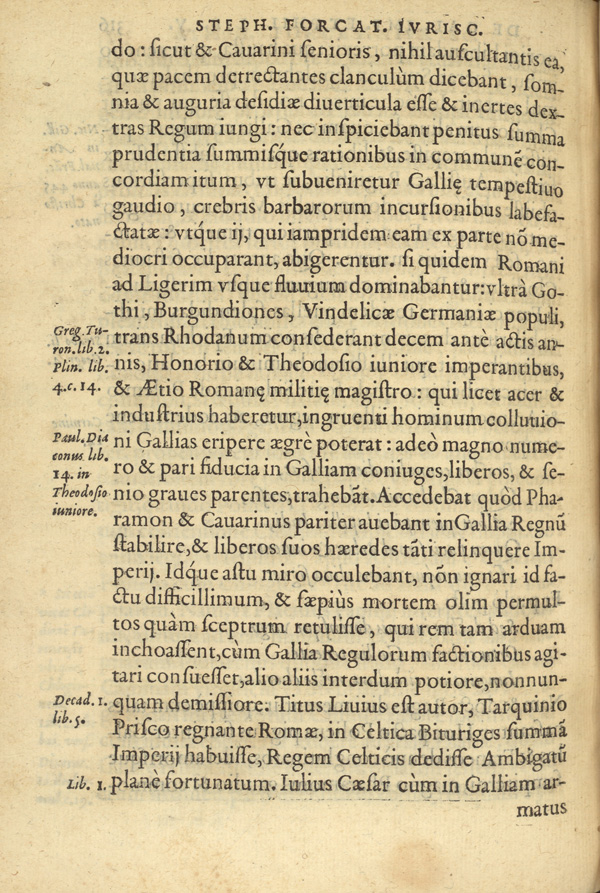 STEPH. FORCAT. IVRISC.
do : sicut & Cauarini senioris , nihil auscultantis ea,
quæ pacem detrectantes clanculùm dicebant , som-
nia & auguria desidiæ diuerticula esse & inertes dex-
tras Regum iungi : nec inspiciebant penitus summa
prudentia summisq́ue rationibus in communẽ con-
cordiam itum , vt subueniretur Gallię tempestiuo
gaudio , crebris barbarorum incursionibus labefa-
ctatæ : vtq́ue ij, qui iampridem eam ex parte nõ me-
diocri occuparant, abigerentur. si quidem Romani
ad Ligerim vsque fluuium dominabantur: vltrà Go-
thi , Burgundiones , Vindelicæ Germaniæ populi,
Greg. Tu-
ron. lib. 2.
Plin. lib.
4. c. 14.
trans Rhodanum consederant decem antè actis an-
nis, Honorio & Theodosio iuniore imperantibus,
& Ætio Romanę militię magistro : qui licet acer &
industrius haberetur, ingruenti hominum colluuio-
Paul. Dia
conus lib.
14. in
Theodosio
iuniore.
ni Gallias eripere ægrè poterat : adeò magno nume-
ro & pari fiducia in Galliam coniuges, liberos, & se-
nio graues parentes, trahebãt. Accedebat quòd Pha-
ramon & Cauarinus pariter auebant in Gallia Regnũ
stabilire, & liberos suos hæredes tãti relinquere Im-
perij. Idq́ue astu miro occulebant, nõn ignari id fa-
ctu difficillimum, & sæpiùs mortem olim permul-
tos quàm sceptrum retulisse , qui rem tam arduam
inchoassent, cùm Gallia Regulorum factionibus agi-
tari consuesset, alio aliis interdum potiore, nonnun-
Decad. 1.
lib. 5.
quam demissiore. Titus Liuius est autor, Tarquinio
Prisco regnante Romæ, in Celtica Bituriges summã
Imperij habuisse, Regem Celticis dedisse Ambigatũ
Lib. 1.
planè fortunatum. Iulius Cæsar cùm in Galliam ar-
matus